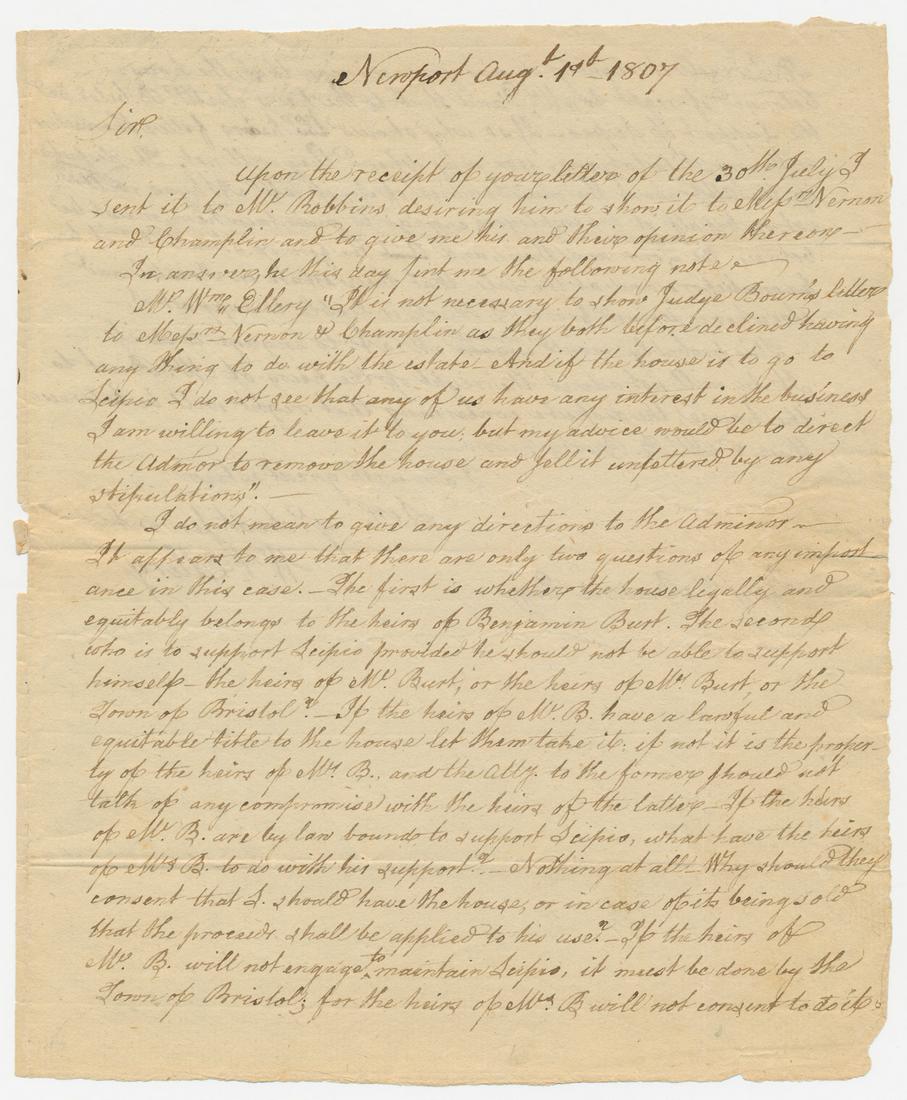 Newport Augt. 19th 1807
Sir,
Upon the receipt of your letter of the 30th July I
sent it to Mr. Robbins, desiring him to show it to Messrs Vernon
and Champlin and to give me his and their opinion thereon—
In answer, he this day sent me the following note—
Mr. Wm. Ellery "It is not necessary to show Judge Bourn's letter
to Messrs Vernon & Champlin as they both before declined having
any thing to do with the estate—And if the house is to go to
Scipio I do not see that any of us have any interest in the business
I am willing to leave it to you; but my advice would be to direct
the Admor to remove the house and sell it unfettered by any
stipulations".—
I do not mean to give any directions to the Adminor—
It appears to me that there are only two questions of any import
ance in this case.—The first is whether the house legally and
equitably belongs to the heirs of Benjamin Burt. The second
who is to support Scipio provided he should not be able to support
himself—the heirs of Mr. Burt, or the heirs of Mrs Burt, or the
Town of Bristol?—If the heirs of Mr. B. have a lawful and
equitable title to the house let them take it; if not it is the proper-
ty of the heirs of Mrs B., and the Atty. to the former should not
talk of any compromise with the heirs of the latter—If the heirs
of Mr. B. are by law bound to support Scipio, what have the heirs
of Mrs B. to do with his support?—Nothing at all—Why should they
consent that S. should have the house, or in case of its being sold
that the proceeds shall be applied to his use?—If the heirs of
Mr. B. will not engage to maintain Scipio, it must be done by the
Town of Bristol; for the heirs of Mrs. B will not consent to do it.